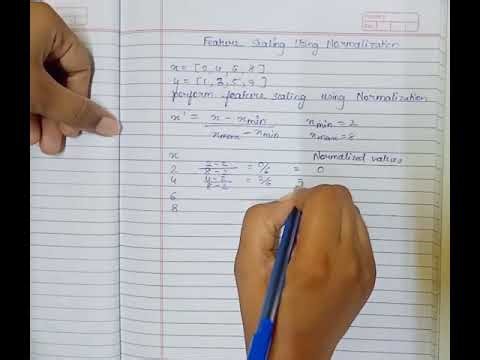 Feature Scaling Using Normalization
x = [2, 4, 6, 8]
y = [1, 3, 5, 7]
perform feature scaling using Normalization
x' = x - xmin / xmax - xmin xmin = 2
xmax = 8
x Normalized values
2 2-2 / 8-2 = 0/6 = 0
4 4-2 / 8-2 =
6
8